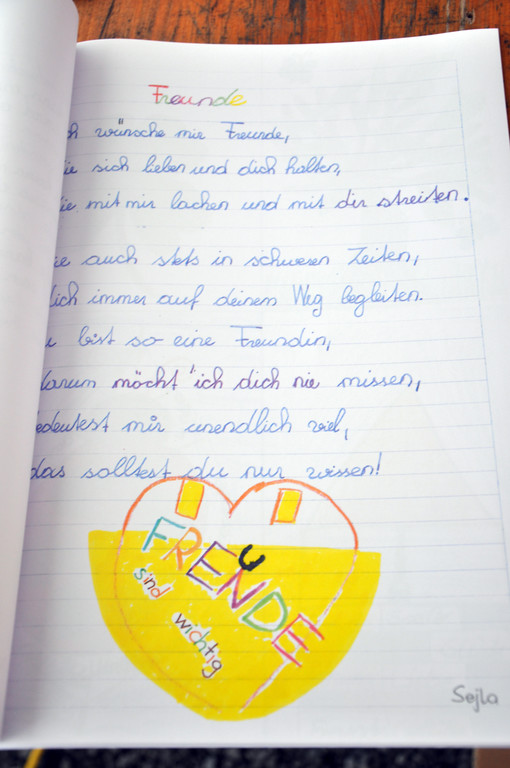 Freunde
ch wünsche mir Freunde,
ie sich lieben und dich halten,
ie mit mir lachen und mit dir streiten.
ie auch stets in schweren Zeiten,
lich immer auf deinem Weg begleiten.
u bist so eine Freundin,
darum möcht' ich dich nie missen,
bedeutest mir unendlich viel,
das solltest du nur wissen!
FREUNDE
sind
wichtig
Sejla